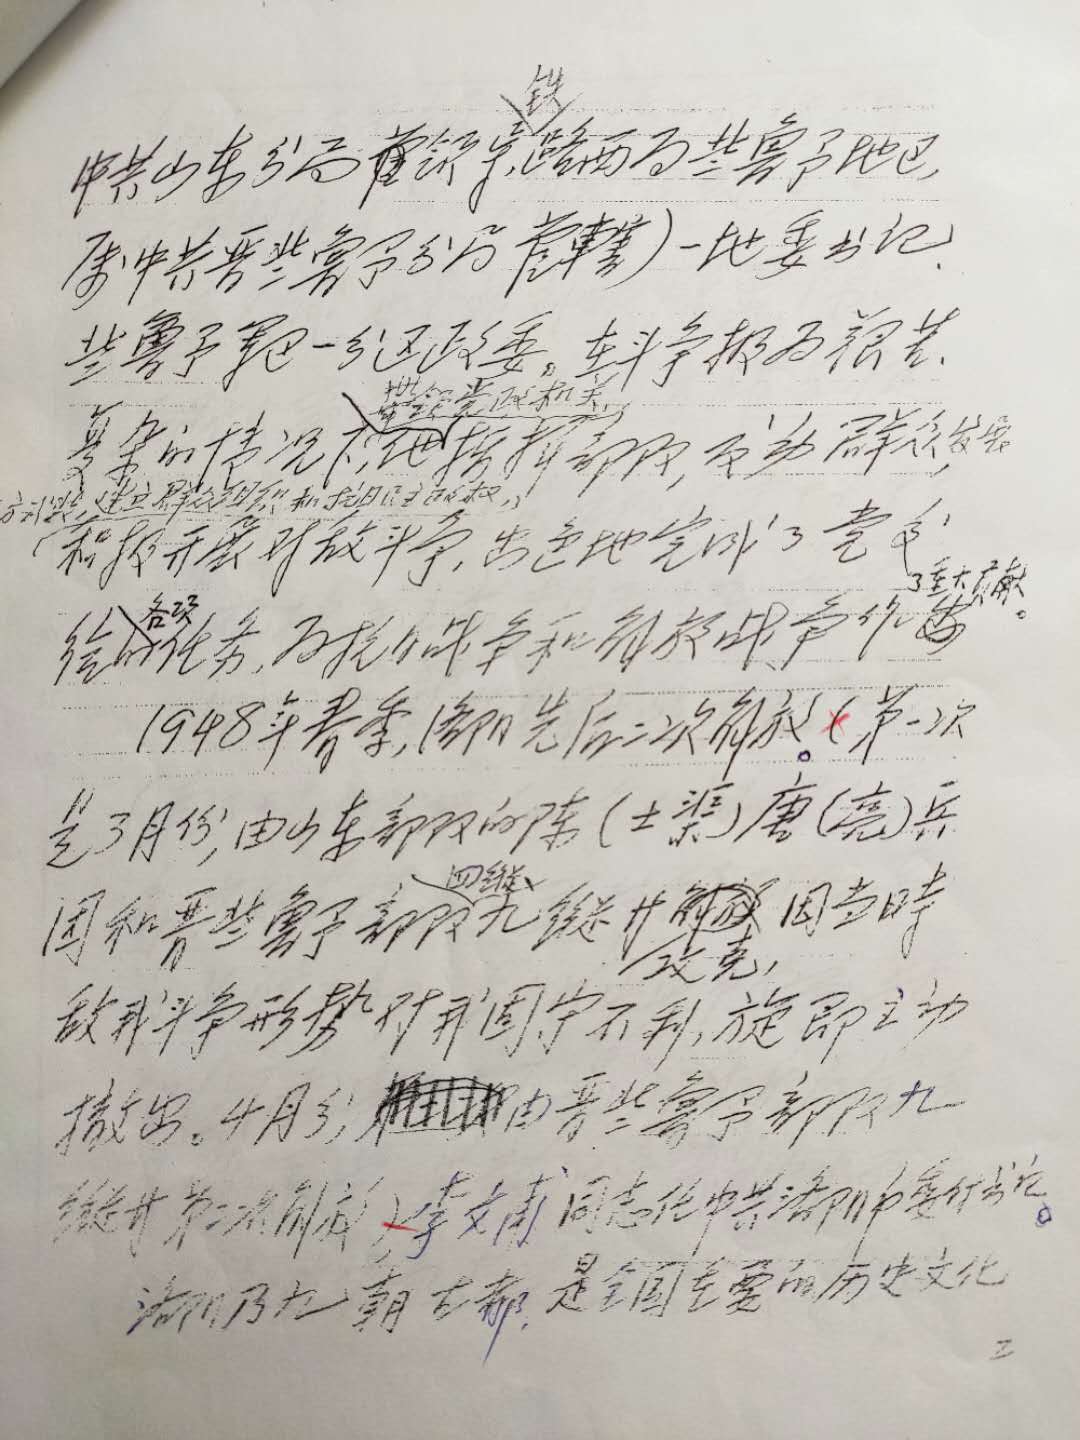 铁
中共山东分局管领导,路西为冀鲁予地区,
属中共晋冀鲁予分局管辖)一地委书记、
冀鲁予军区一分区政委。在斗争极为艰苦、
带领党政机关,
复杂的情况下,他指挥部队,发动群众,发展
建立群众组织和抗日民主政权,
积极开展对敌斗争,出色地完成了党交
了重大贡献。
各项
给的任务,为抗日战争和解放战争作出
1948年春季,洛阳先后二次解放。(第一次
是3月份,由山东部队的陈(士渠)唐(亮)兵
四纵
团和晋冀鲁予部队九纵队解放因当時
攻克,
敌我斗争形势对我固守不利,旋即主动
撤出。4月份,由晋冀鲁予部队九
纵队第二次解放)李文甫同志任中共洛阳市委付书记。
洛阳乃九朝古都,是全国主要的历史文化